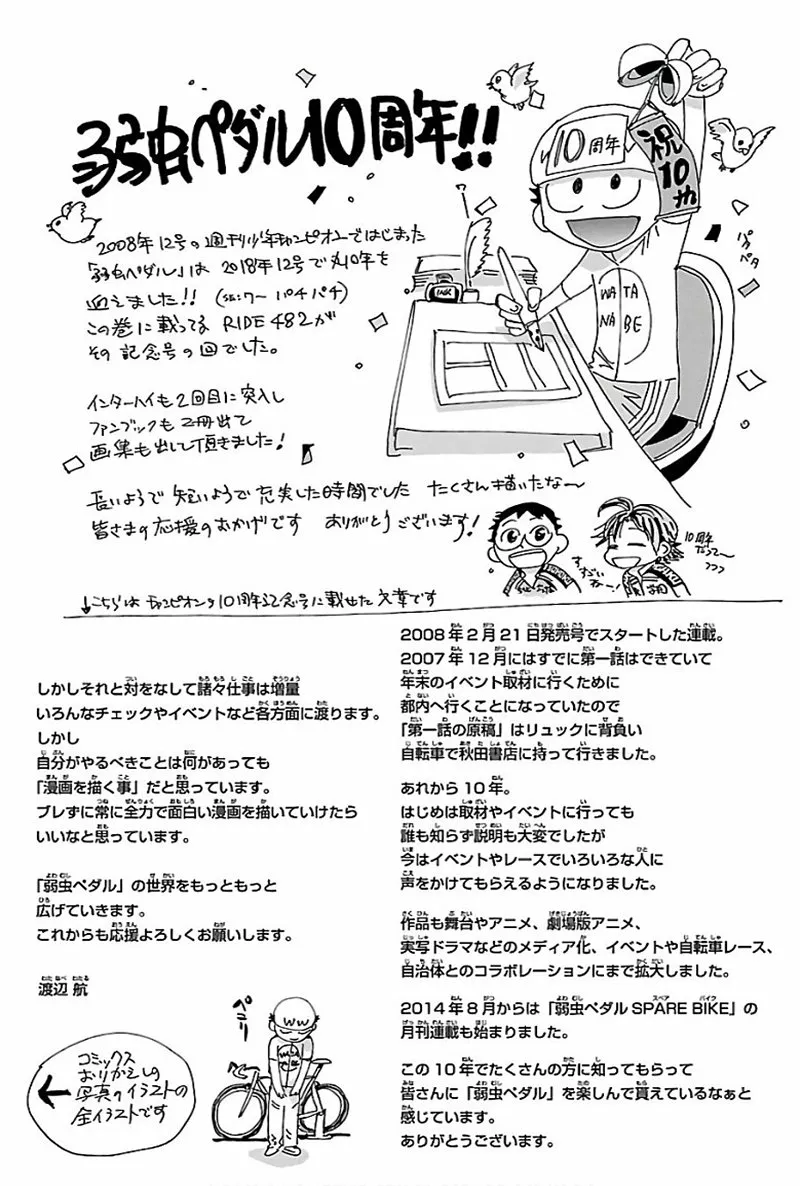 弱虫ペダル10周年!!
10周年
祝10th
パタパタ
WATA
NABE
INK
2008年12号の週刊少年チャンピオンではじまった
「弱虫ペダル」は 2018年12号で丸10年を
迎えました!!
パチパチ)
この巻に載ってる RIDE 482が
その記念号の回でした。
インターハイも2回目に突入し
ファンブックも2冊出て
画集も出して頂きました!
長いようで短いようで充実した時間でした たくさん描いたな〜
皆さまの応援のおかげです ありがとうございます!
10周年
だって〜
↓こちらはチャンピオンの10周年記念号に載せた文章です
2008年2月21日発売号でスタートした連載。
2007年12月にはすでに第一話はできていて
年末のイベント取材に行くために
都内へ行くことになっていたので
「第一話の原稿」はリュックに背負い
自転車で秋田書店に持って行きました。
あれから10年。
はじめは取材やイベントに行っても
誰も知らず説明も大変でしたが
今はイベントやレースでいろいろな人に
声をかけてもらえるようになりました。
作品も舞台やアニメ、劇場版アニメ、
実写ドラマなどのメディア化、イベントや自転車レース、
自治体とのコラボレーションにまで拡大しました。
2014年8月からは「弱虫ペダル SPARE BIKE」の
月刊連載も始まりました。
この10年でたくさんの方に知ってもらって
皆さんに「弱虫ペダル」を楽しんで貰えているなぁと
感じています。
ありがとうございます。
しかしそれと対をなして諸々仕事は増量
いろんなチェックやイベントなど各方面に渡ります。
しかし
自分がやるべきことは何があっても
「漫画を描く事」だと思っています。
ブレずに常に全力で面白い漫画を描いていけたら
いいなと思っています。
「弱虫ペダル」の世界をもっともっと
広げていきます。
これからも応援よろしくお願いします。
渡辺 航
ペコリ
コミックス
おりかえしの
写真のイラストの
全イラストです